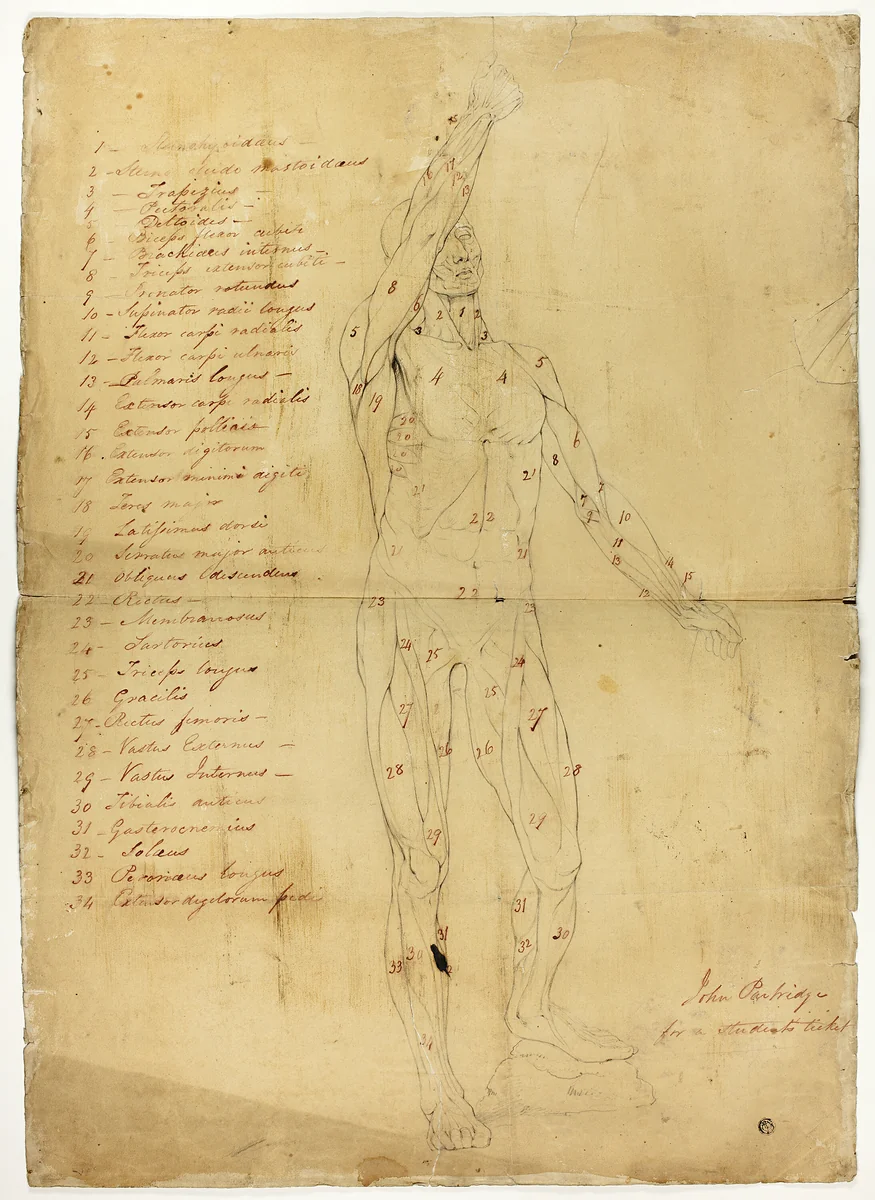 1 - Sternohyoidaeus -
2 - Sterno cleido mastoidaeus
3 - Trapezius -
4 - Pectoralis -
5 - Deltoides -
6 - Biceps flexor cubiti
7 - Brachiaeus internus -
8 - Triceps extensor cubiti -
9 - Pronator rotundus
10 - Supinator radii longus
11 - Flexor carpi radialis
12 - Flexor carpi ulnaris
13 - Palmaris longus -
14 Extensor carpi radialis
15 Extensor pollicis
16 . Extensor digitorum
17 Extensor minimi digiti
18 Teres major
19 Latissimus dorsi
20 Serratus major anticus
21 Obliquus descendens
22 - Rectus -
23 - Membranosus
24 - Sartorius
25 - Triceps longus
26 Gracilis
27 - Rectus femoris -
28 - Vastus Externus -
29 - Vastus Internus -
30 Tibialis anticus
31 - Gasterocnemius
32 - Solaeus
33 Peronaeus longus
34 Extensor digitorum pedis
16 17 12
13
8
6 2 1 2
5 3 3 5
4 4
18 19
20
20
6
8
21 21
7 7
9 10
22
11
13 14
15
12
21 21
22
23 23
24 24
25 25
27 27
26 26
28 28
29 29
31
32 30
31
33 30
34
John Partridge
for a students ticket